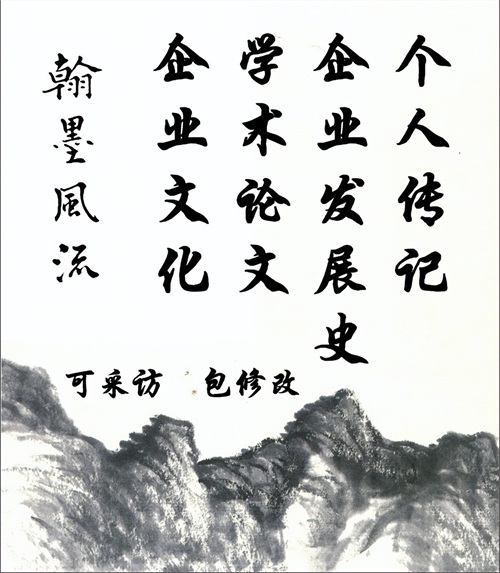 个人传记
企业发展史
学术论文
企业文化
翰墨風流
可采访 包修改